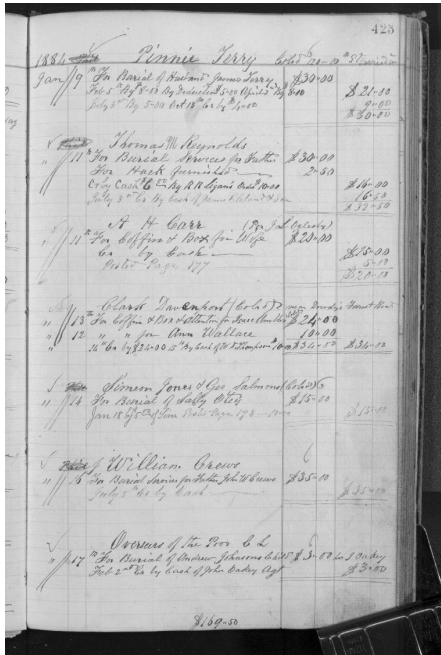 423
1884 Pinnie Terry Cold
Jan 9th For Burial of Husband James Terry $30-00
Feb 5th By 8-00 By 5-00 April 2nd By 8-00 $21-00
July 3rd By 5-00 Oct 18th Cr by 4-00 9-00
$30-00
Thomas M Reynolds
" 11th For Burial Services for Father $30-00
For Hack furnished 2-50
Cr by Cash 6 00 By R R 10-00 $16-00
July 3rd Cr by Cash of 16-50
$32-50
A H Carr
" 11 For Coffin & Box for Wife $20-00
Cr by Cash $15-00
Page 177 5-00
$20-00
Clark Davenport (Cold) near Forest Road
" 13th For Coffin & Box & attention for $24-00
" 12 " " for Ann Wallace 10-00
" 14th Cr by $24-00 15th By Cash of Thompson 10-00 $34-00 $34-00
Simeon Jones & Geo Salmons (Cold)
" 14 For Burial of Sally Otey $15-00
Jan 18 Page 178 $15-00
William Crews
" 16th For Burial Services for Father John W Crews $35-00
July 5th Cr by Cash $35-00
Overseers of the Poor C L
" 17th For Burial of Andrew Johnsons Child $3-00 to J Oakey
Feb 2nd Cr by Cash of John Oakey Agt $3-00
$169-50